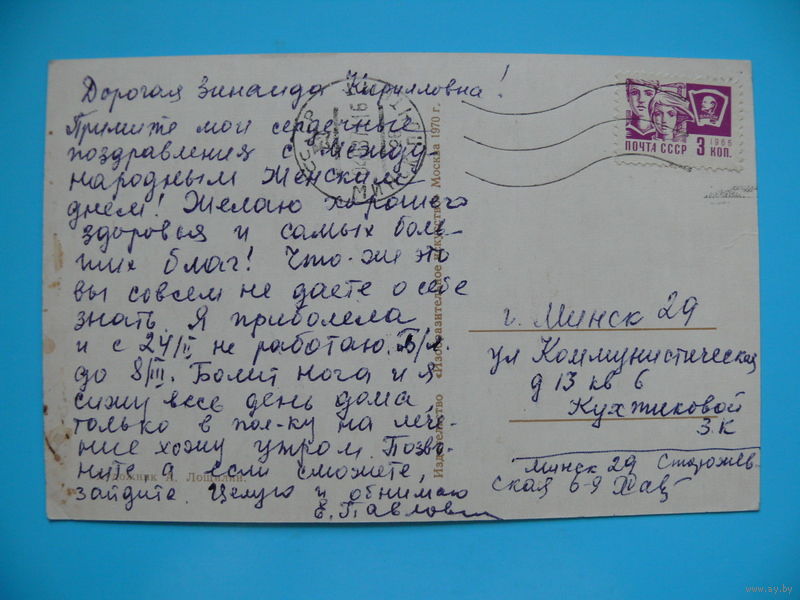 Дорогая Зинаида Кирилловна!
Примите мои сердечные
поздравления с Между
народным Женским
днём! Желаю хорошего
здоровья и самых боль-
ших благ! Что-же это
вы совсем не даете о себе
знать. Я приболела
и с 24/II не работаю. Б/л.
до 8/III. Болит нога и я
сижу весе день дома,
только в пол-ку на лече-
ние хожу утром. Позво-
ните а если сможете,
зайдите. Целую и обнимаю
Е. Павловна
А. Лощилин.
Издательство «Изобразительное искусство» Москва 1970 г.
ПОЧТА СССР 3 КОП.
1966
г. Минск 29
ул Коммунистическая
д 13 кв 6
Кухтиковой
З.К
Минск 29 Сторожев-
ская 6-9
www.ay.by